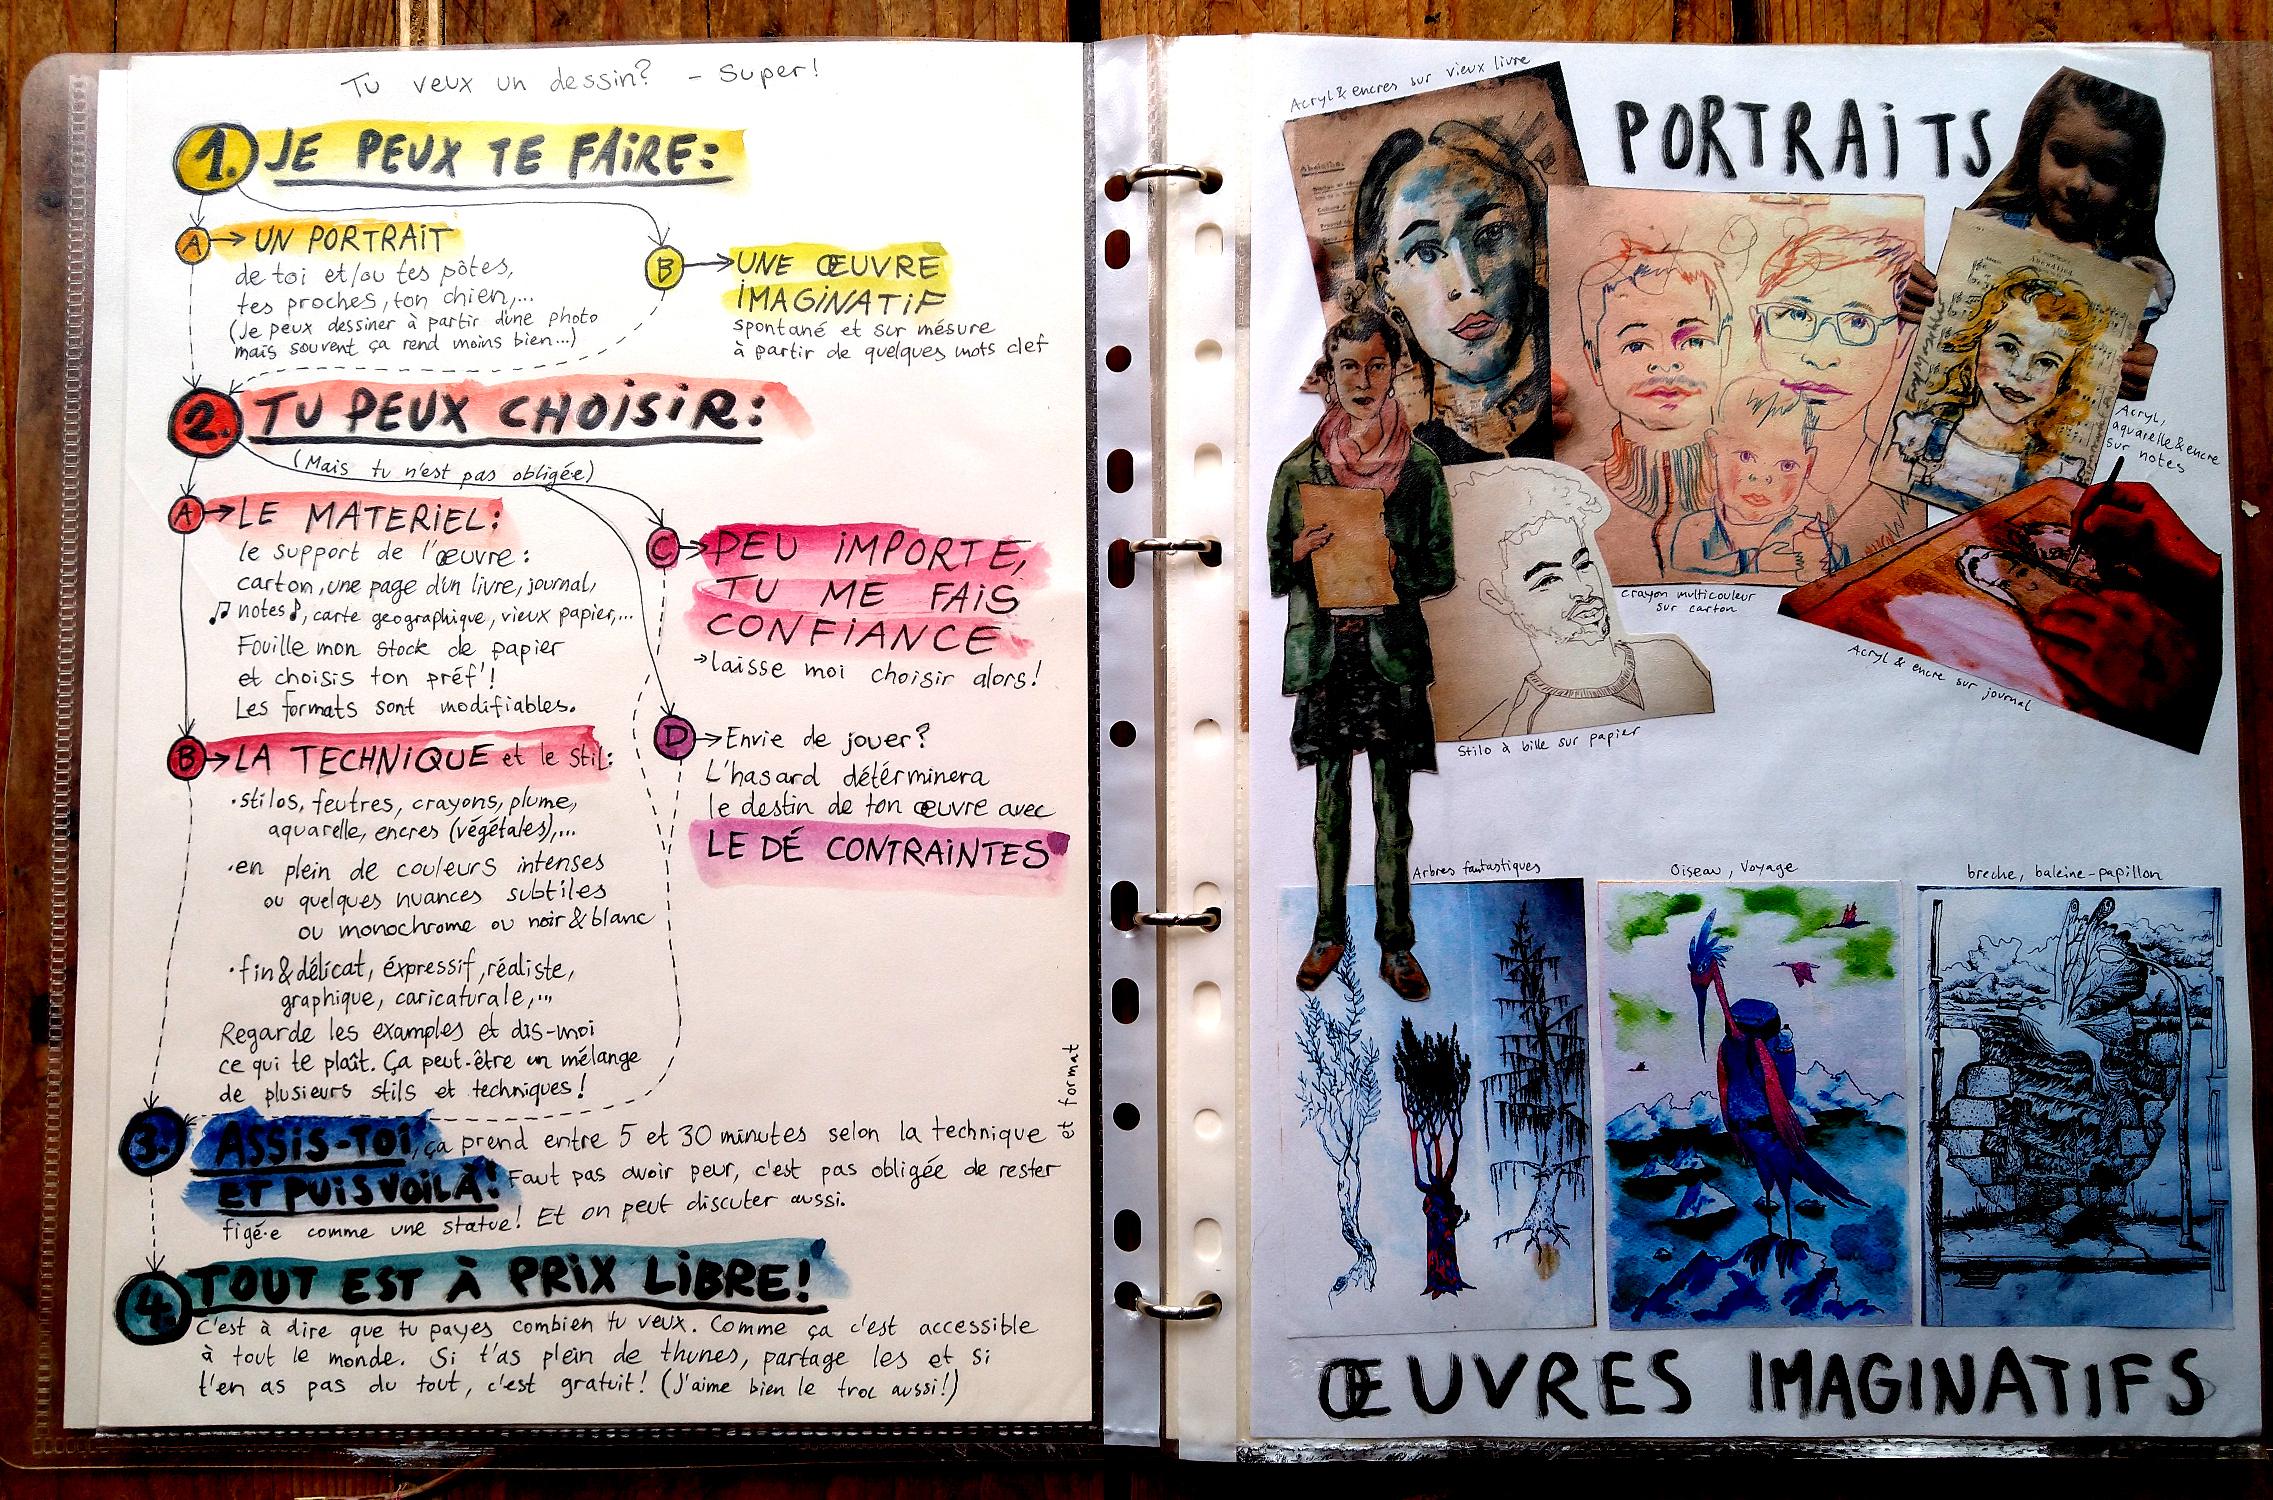 Tu veux un dessin? - Super!
1. JE PEUX TE FAIRE:
A → UN PORTRAIT
de toi et/ou tes pôtes,
tes proches, ton chien,...
(Je peux dessiner à partir d'une photo
mais souvent ça rend moins bien...)
B → UNE ŒUVRE
IMAGINATIF
spontané et sur mésure
à partir de quelques mots clef
2. TU PEUX CHOISIR:
(Mais tu n'est pas obligée)
A → LE MATERIEL:
le support de l'œuvre:
carton, une page d'un livre, journal,
♫ notes ♪, carte geographique, vieux papier,...
Fouille mon stock de papier
et choisis ton préf'!
Les formats sont modifiables.
B → LA TECHNIQUE et le stil:
• stilos, feutres, crayons, plume,
aquarelle, encres (végétales),...
• en plein de couleurs intenses
ou quelques nuances subtiles
ou monochrome ou noir & blanc
• fin & délicat, éxpressif, réaliste,
graphique, caricaturale,...
Regarde les examples et dis-moi
ce qui te plaît. Ça peut-être un mélange
de plusieurs stils et techniques!
C → PEU IMPORTE,
TU ME FAIS
CONFIANCE
→ laisse moi choisir alors!
D → Envie de jouer?
L'hasard détérminera
le destin de ton œuvre avec
LE DÉ CONTRAINTES
3. ASSIS-TOI, ça prend entre 5 et 30 minutes selon la technique
et format
ET PUIS VOILÀ! Faut pas avoir peur, c'est pas obligée de rester
figé·e comme une statue! Et on peut discuter aussi.
4. TOUT EST À PRIX LIBRE!
C'est à dire que tu payes combien tu veux. Comme ça c'est accessible
à tout le monde. Si t'as plein de thunes, partage les et si
t'en as pas du tout, c'est gratuit! (J'aime bien le troc aussi!)
Acryl & encres sur vieux livre
PORTRAITS
Acryl,
aquarelle & encre
sur notes
crayon multicouleur
sur carton
Acryl & encre sur journal
Stilo à bille sur papier
Arbres fantastiques
Oiseau, Voyage
breche, baleine-papillon
ŒUVRES IMAGINATIFS